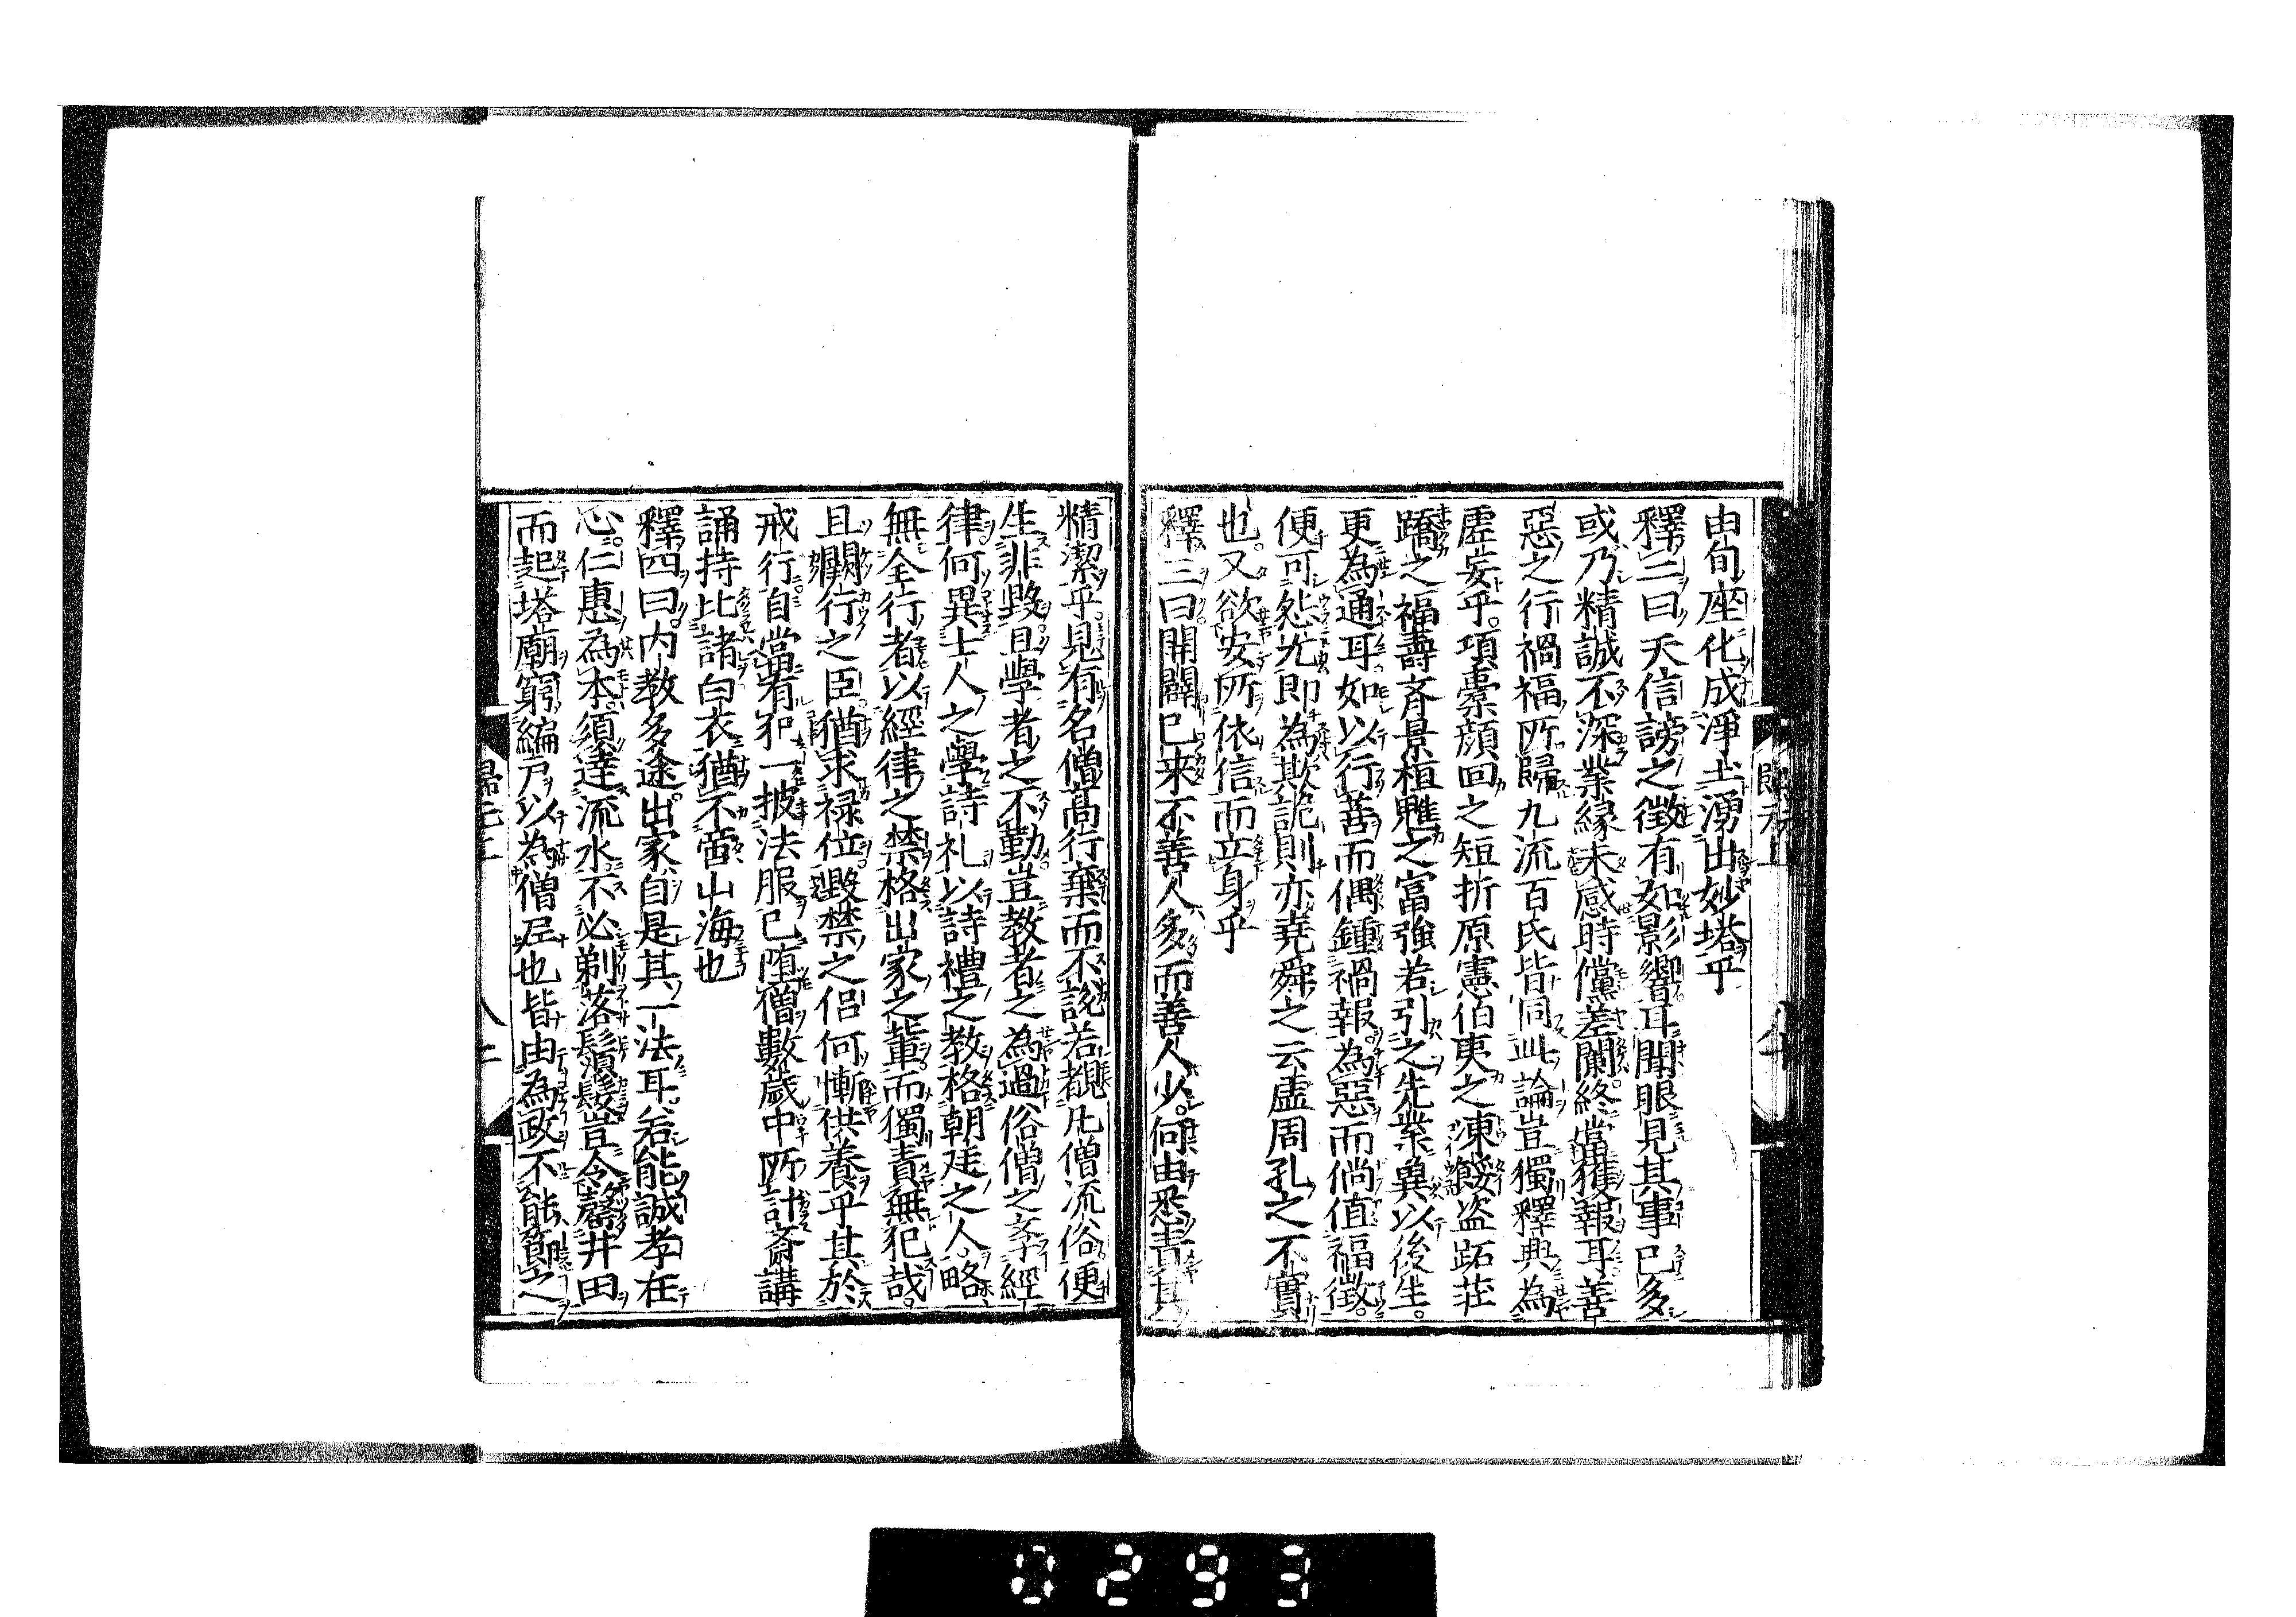 由旬座化成淨土湧出妙塔乎
釋二曰夫信謗之徵有如影響耳聞眼見其事已多
或乃精誠不深業緣未感時儻差闌終當獲報耳善
惡之行禍福所歸九流百氏皆同此論豈獨釋典為
虛妄乎項橐顏回之短折原憲伯夷之凍餒盗跖莊
蹻之福壽斉景桓魋之富強若引之先業冀以後生
更為通耳如以行善而偶鍾禍報為惡而倘值福徵
便可怨尤即為欺詭則亦堯舜之云虛周孔之不實
也又欲安所依信而立身乎
釋三曰開闢已来不善人多而善人少何由悉責其
精潔乎見有名僧高行棄而不說若覩凡僧流俗便
生非毀且學者之不勤豈教者之為過俗僧之斈經
律何異士人之學詩礼以詩禮之教格朝廷之人略
無全行者以經律之禁格出家之輩而獨責無犯哉
且闕行之臣猶求禄位毀禁之侶何慚供養乎其於
戒行自當有犯一披法服已墮僧數歲中所計斎講
誦持比諸白衣猶不啻山海也
釋四曰内教多途出家自是其一法耳若能誠孝在
心仁惠為本須達流水不必剃落鬚髮豈令罄井田
而起塔廟窮編戸以為僧尼也皆由為政不能節之
0293